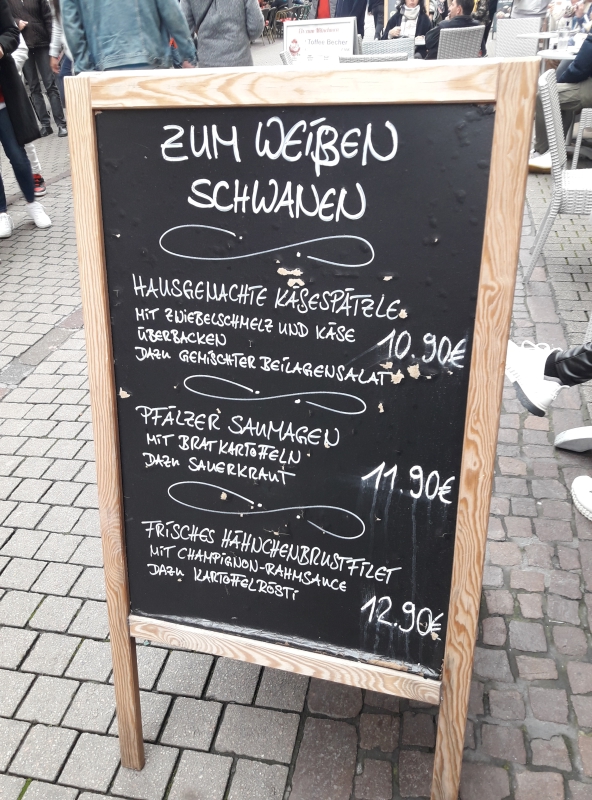 Toffee Becher
ZUM WEIßEN
SCHWANEN
HAUSGENACHTE KÄSESPÄTZLE
MIT ZWIEBELSCHMELZ UND KÄSE
ÜBERBACKEN
10.90€
DAZU GEMISCHTER BEILAGENSALAT
PFÄLZER SAUMAGEN
MIT BRATKARTOFFELN
DAZU SAUERKRAUT
11.90€
FRISCHES HÄHNCHENBRUSTFILET
MIT CHAMPIGNON-RAHMSAUCE
DAZU KARTOFFELRÖSTI
12.90€